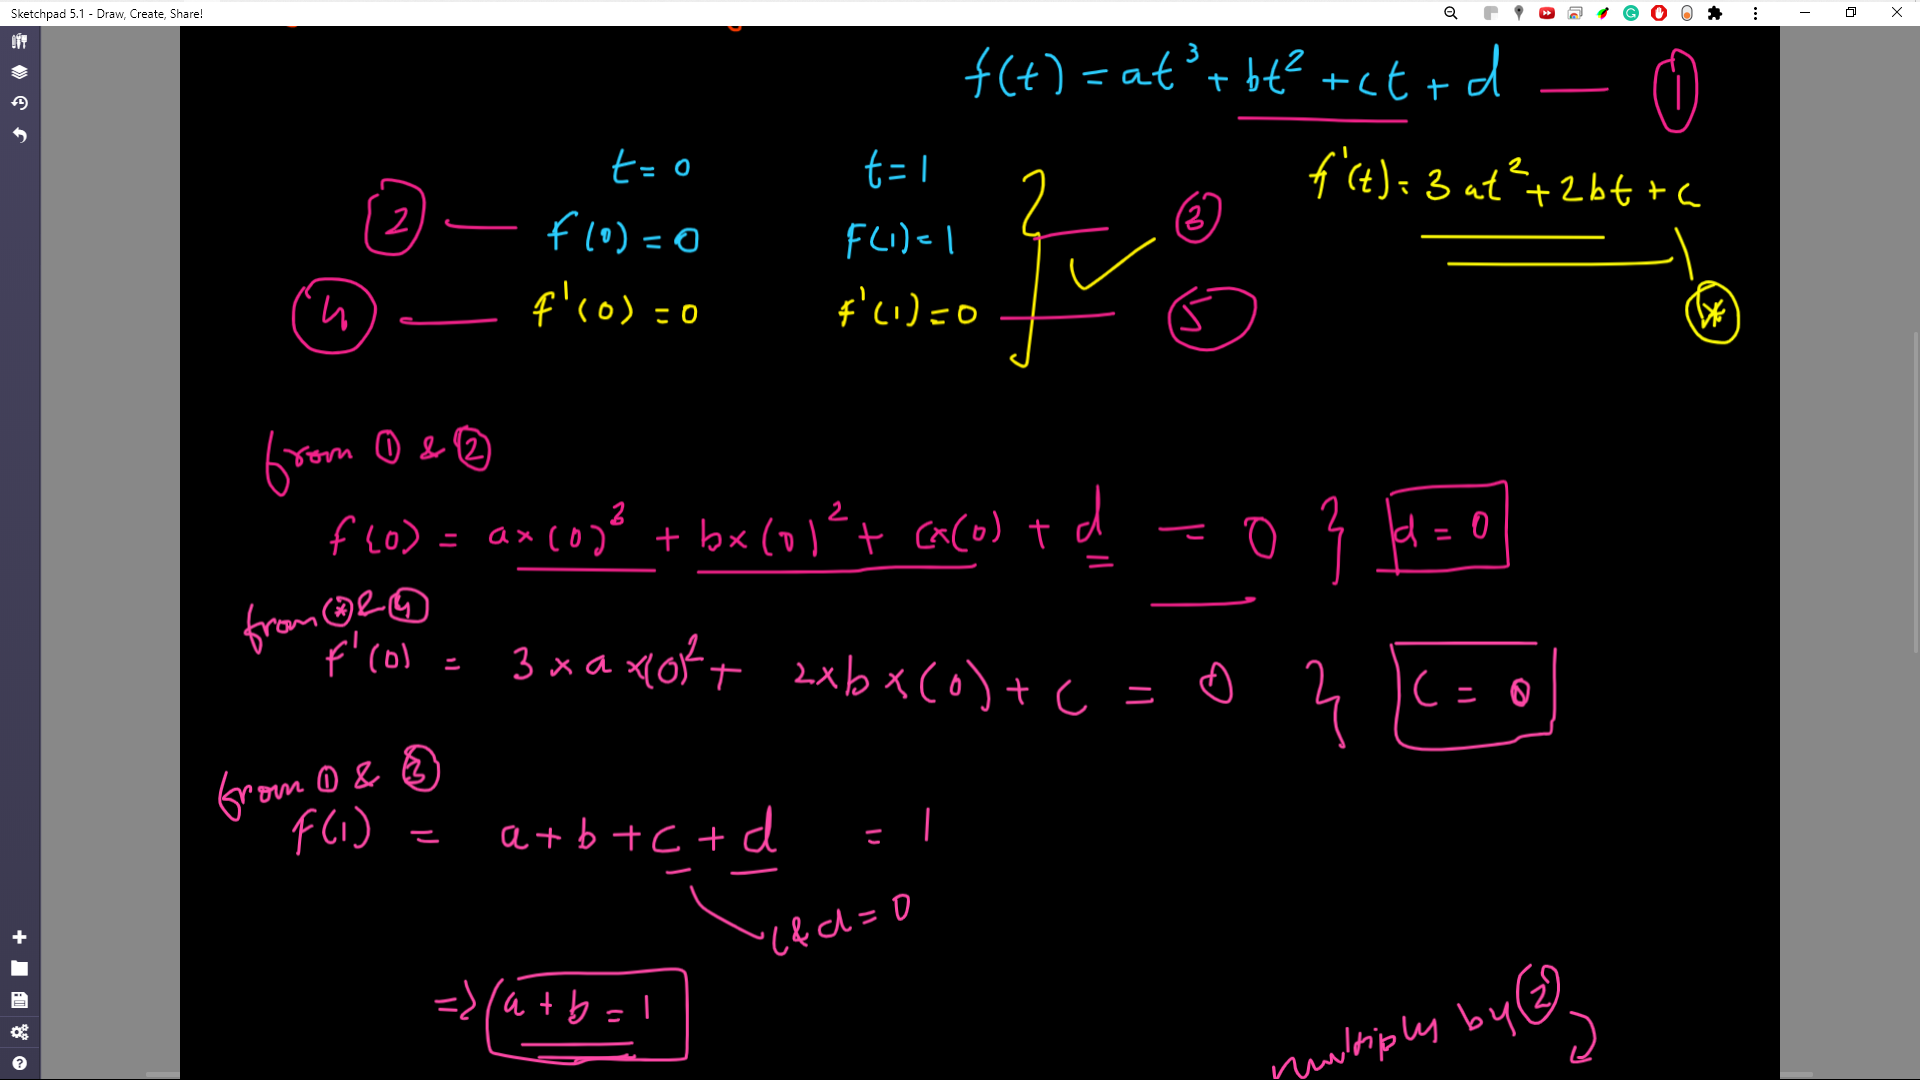 Sketchpad 5.1 - Draw, Create, Share!
f(t) = at³ + bt² + ct + d — ①
t = 0 t = 1 f'(t) = 3at² + 2bt + c
② — f(0) = 0 F(1) = 1 — ③
④ — f'(0) = 0 f'(1) = 0 — ⑤ (*)
from ① & ②
f(0) = a×(0)³ + b×(0)² + c×(0) + d = 0 } d = 0
from (*) & ④
f'(0) = 3 × a × (0)² + 2 × b × (0) + c = 0 } c = 0
from ① & ③
f(1) = a + b + c + d = 1
c & d = 0
=> a + b = 1
multiply by ②